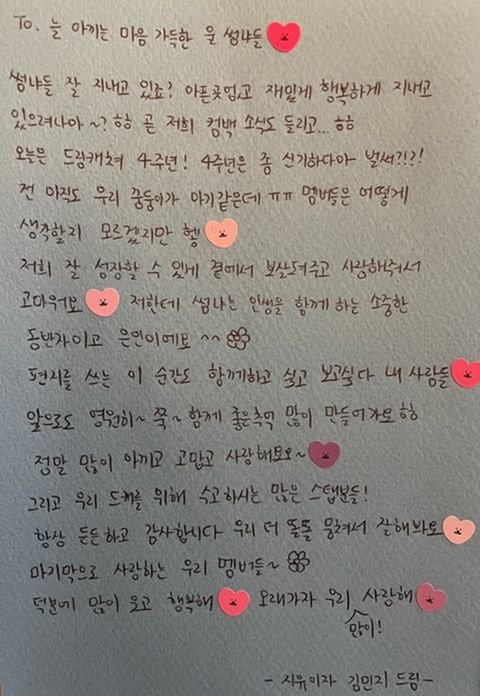 To. 늘 아끼는 마음 가득한 울 썸냐들
썸냐들 잘 지내고 있죠? 아픈곳없고 재밌게 행복하게 지내고
있으려나아~? ㅎㅎ 곧 저희 컴백 소식도 들리고... ㅎㅎ
오늘은 드림캐쳐 4주년! 4주년은 좀 신기하다아 벌써?!?!
전 아직도 우리 꿍둥이가 아기같은데 ㅠㅠ 멤버들은 어떻게
생각할지 모르겠지만 헹
저희 잘 성장할 수 있게 곁에서 보살펴주고 사랑해줘서
고마워요 저한테 썸냐는 인생을 함께 하는 소중한
동반자이고 은인이에요 ^^
편지를 쓰는 이 순간도 함께하고 싶고 보고싶다 내 사람들
앞으로도 영원히~ 쭉~ 함께 좋은추억 많이 만들어가요 ㅎㅎ
정말 많이 아끼고 고맙고 사랑해요오~
그리고 우리 드캐를 위해 수고하시는 많은 스탭분들!
항상 든든하고 감사합니다 우리 더 똘똘 뭉쳐서 잘해봐요
마지막으로 사랑하는 우리 멤버들~
덕분에 많이 웃고 행복해 오래가자 우리 사랑해
많이!
- 시유이자 김민지 드림 -